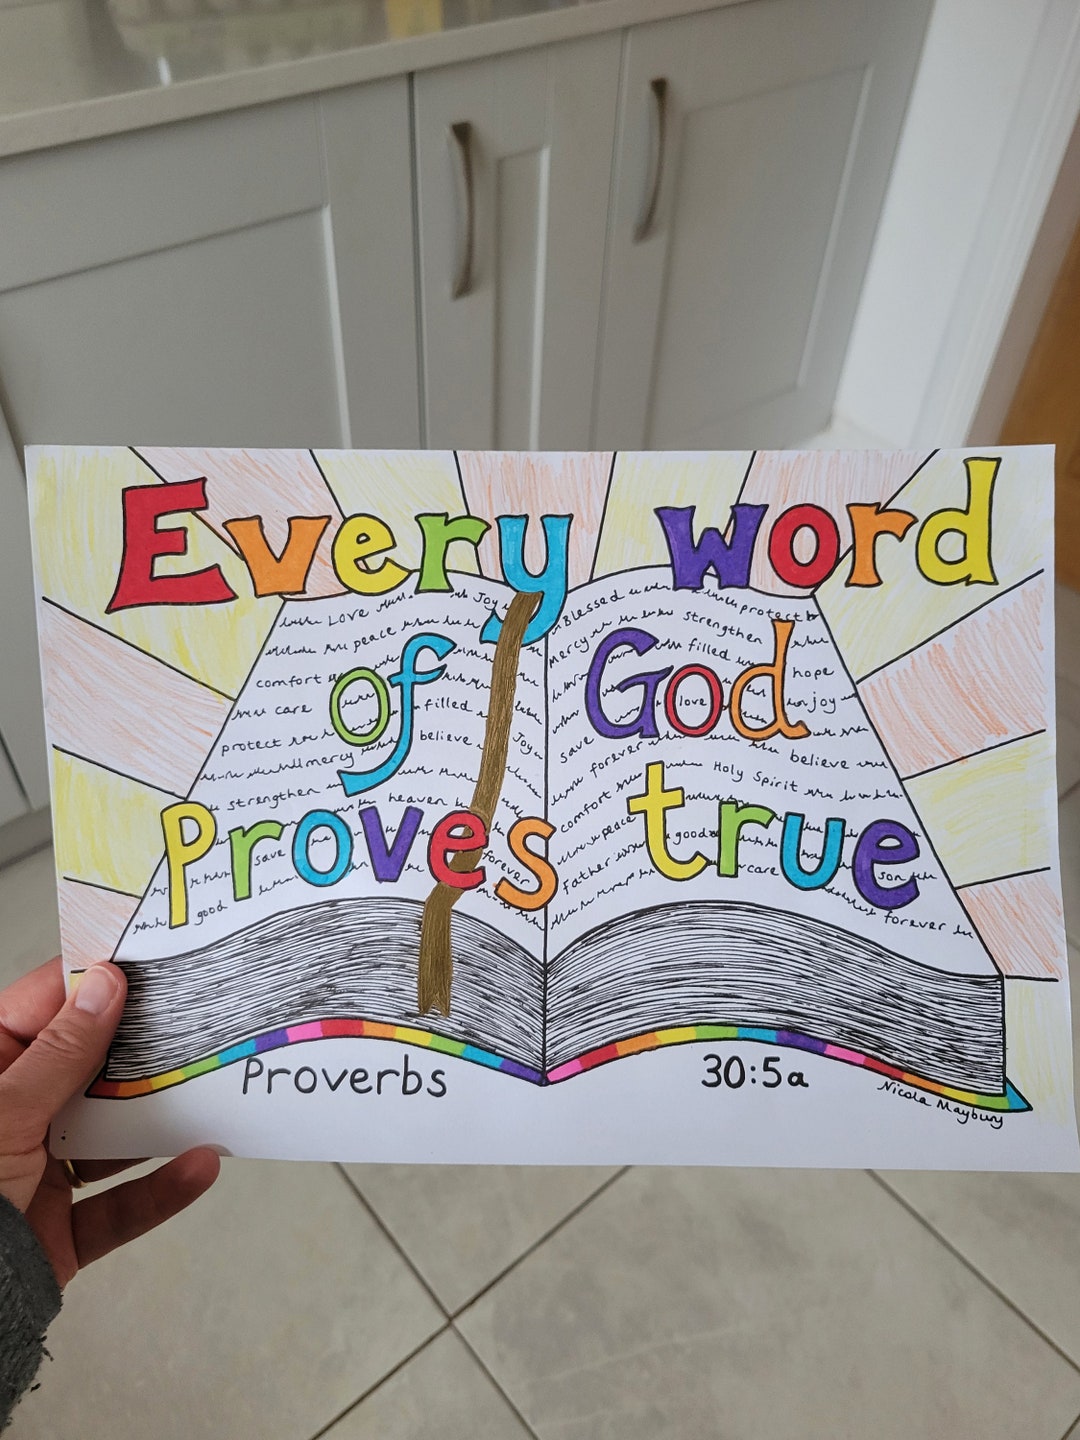 Every word
of God
Proves true
Love Joy
peace
comfort
care filled
protect believe Joy
mercy
strengthen heaven
save forever
good
Blessed protect
Mercy strengthen
filled hope
love joy
save
forever believe
Holy Spirit
comfort
peace good
Father care son
forever
Proverbs 30:5a
Nicola Maybury